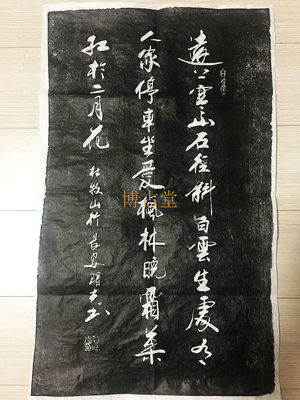 遠上寒山石徑斜白雲生處有
人家停車坐愛楓林晚霜葉
紅於二月花
杜牧山行
博古堂